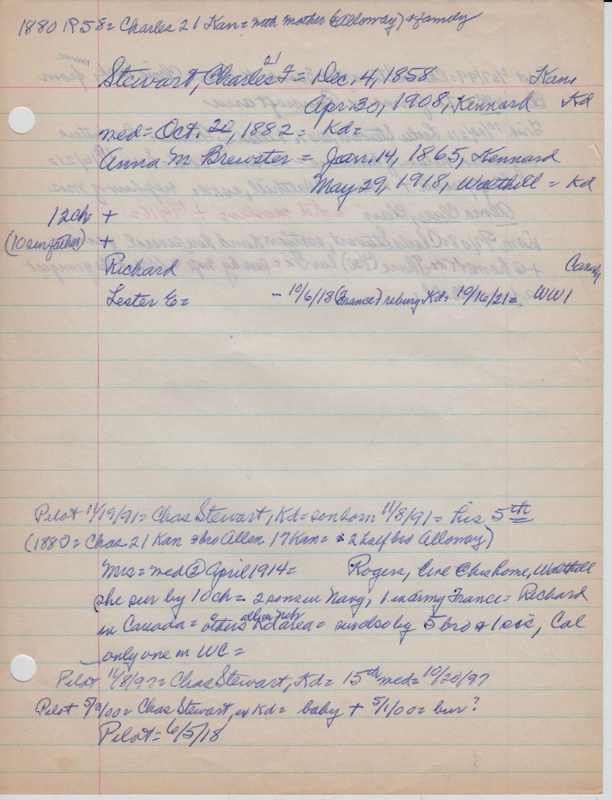 1880 R58 = Charles 21 Kan = with mother (Alloway) & family
21
Stewart, Charles F = Dec. 4, 1858 Kans
Apr. 30, 1908, Kennard Kd
med = Oct. 20, 1882 = Kd =
Anna M Brewster = Jan. 14, 1865, Kennard
May 29, 1918, Walthill = Kd
12 ch +
(10 sur father) +
Richard Canada
Lester E = - 10/6/18 (France) rebury Kd = 10/16/21 = WW1
Pilot 11/19/91 = Chas Stewart, Kd = son born 11/8/91 = his 5th
(1880 = Chas 21 Kan = bro Allen 17 Kan = & 2 half bro Alloway)
Mrs = med ② April 1914 = Rogers, live Chas home, Walthill
she sur by 10 ch = 2 sons in Navy, 1 in Army France = Richard
in Canada = others Kd area = sur also by 5 bro & 1 sis, Cal
all in Neb
only one in WC =
Pilot 11/8/97 = Chas Stewart, Kd = 15th med = 10/20/97
Pilot 5/9/00 = Chas Stewart, Kd = baby + 5/1/00 = bur?
Pilot = 6/5/18